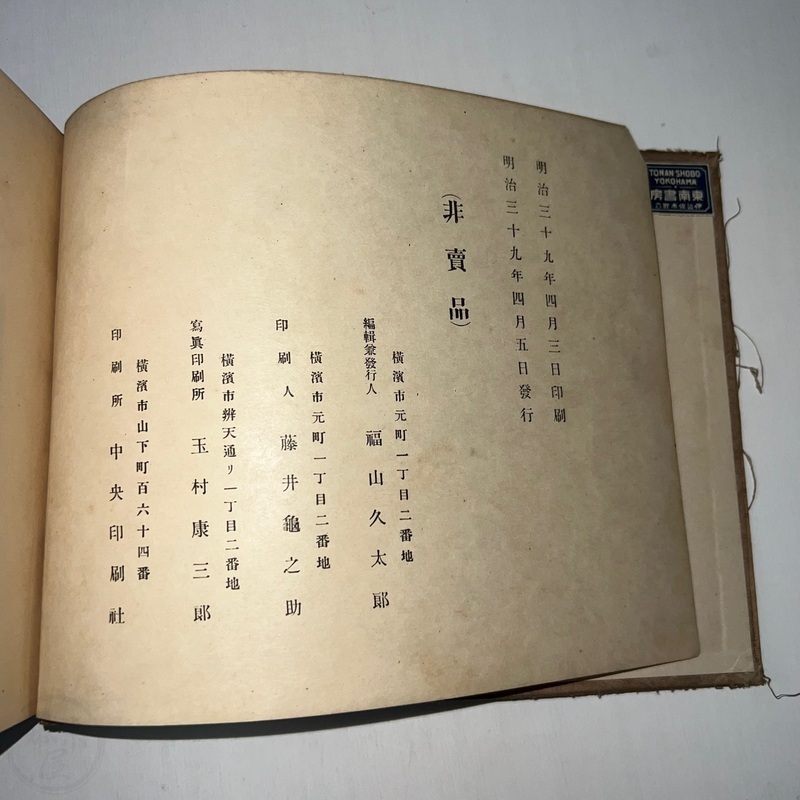 明治三十九年四月三日印刷
明治三十九年四月五日發行
(非賣品)
橫濱市元町一丁目二番地
編輯兼發行人 福山久太郞
橫濱市元町一丁目二番地
印刷人 藤井龜之助
橫濱市辨天通リ一丁目二番地
寫眞印刷所 玉村康三郞
橫濱市山下町百六十四番
印刷所 中央印刷社
TONAN SHOBO
YOKOHAMA
東南書房